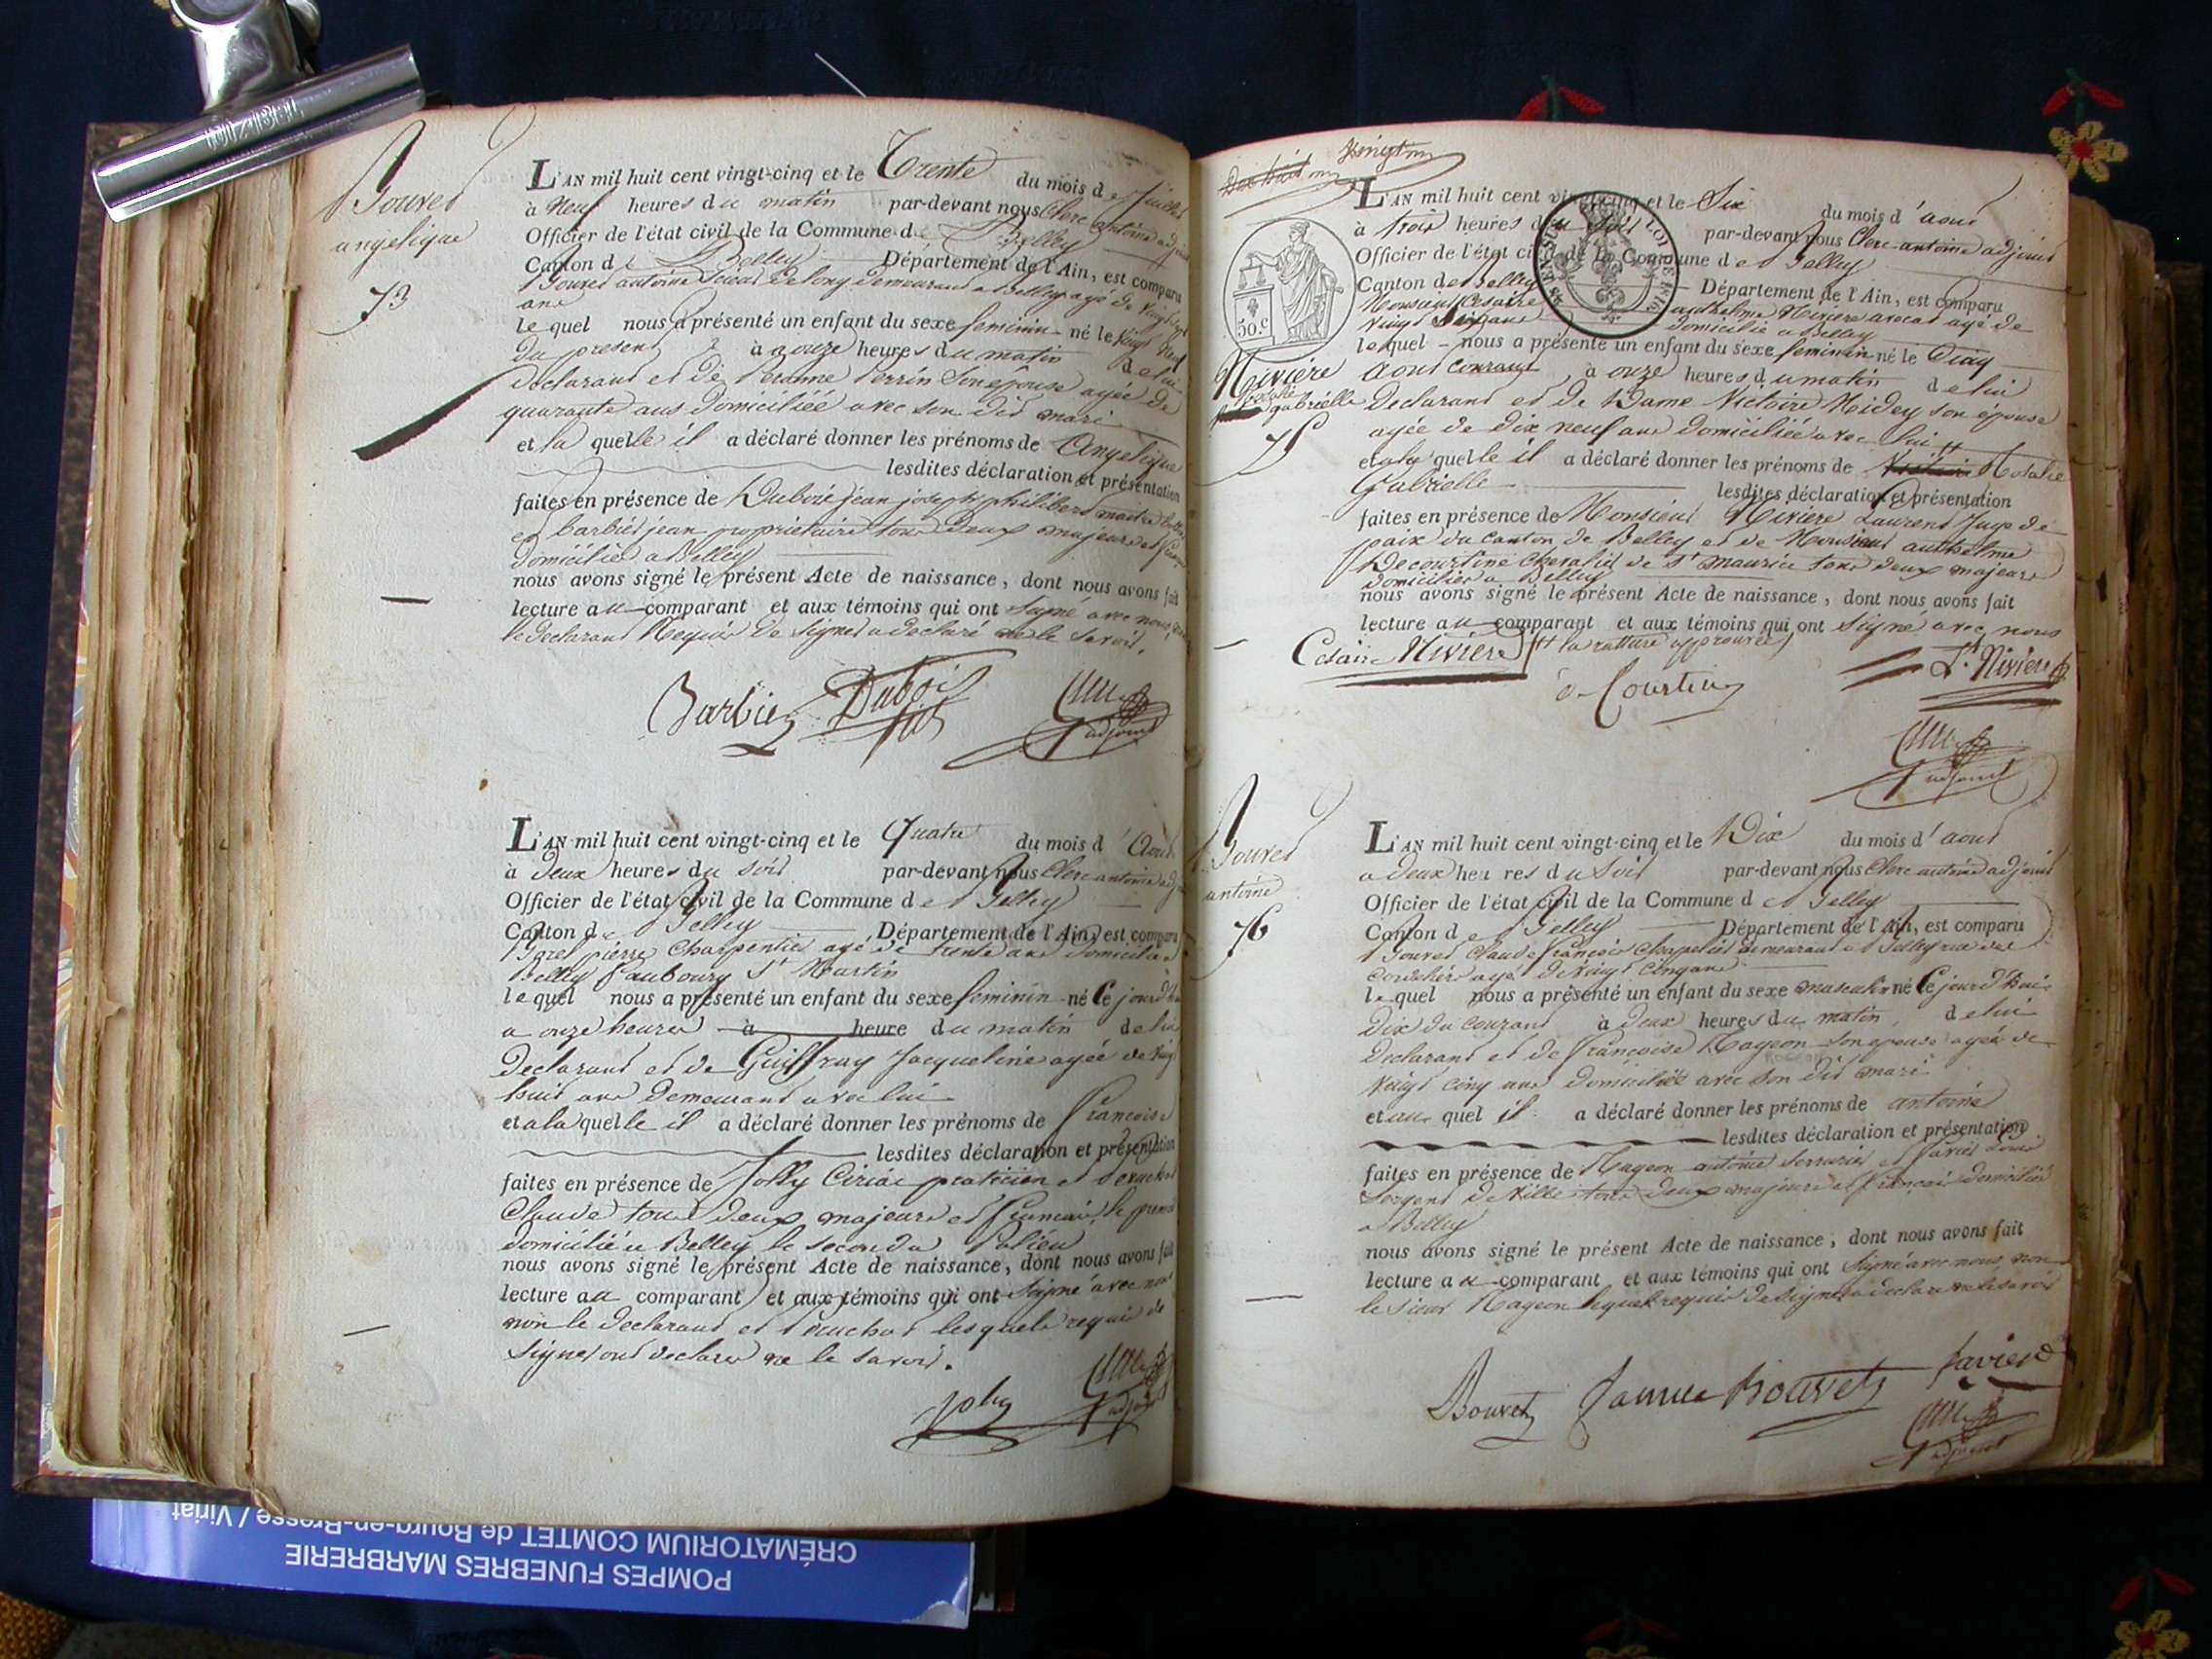 Bouvet
angelique
73
L'AN mil huit cent vingt-cinq et le Trente du mois de Juillet
à Neuf heures du matin par-devant nous Clerc antoine adj
Officier de l'état civil de la Commune de Belley
Canton de Belley Département de l'Ain, est comparu
Bouvet antoine demeurant a Belley agé de
ans
le quel nous a présenté un enfant du sexe feminin né le vingt Neuf
du present à onze heures du matin de lui
Declarant et de Perrin Son épouse agée de
quarante ans Domiciliée avec son dit mari
et la quelle il a déclaré donner les prénoms de Angelique
lesdites déclaration et présentation
faites en présence de Dubois jean joseph philibert
et barbier jean propriétaire tous deux majeurs et
domiciliés a Belley
nous avons signé le présent Acte de naissance, dont nous avons fait
lecture au comparant et aux témoins qui ont signé avec nous
le declarant Requis de signer a declaré ne le savoir.
Barbier Dubois
adjoint
L'AN mil huit cent vingt-cinq et le Quatre du mois d'Aout
à Deux heures du soir par-devant nous Clerc antoine adj
Officier de l'état civil de la Commune de Belley
Canton de Belley Département de l'Ain, est comparu
pierre Charpentier agé de trente ans domicilié
Belley faubourg St Martin
le quel nous a présenté un enfant du sexe feminin né Ce jourd'hui
a onze heures à heure du matin de lui
Declarant et de Guiffray Jacqueline agée de Vingt
huit ans Demeurant avec lui
et a la quelle il a déclaré donner les prénoms de francoise
lesdites déclaration et présentation
faites en présence de Jolly Ciriac praticien et
Claude tous deux majeurs et francais, le premier
domicilié a Belley le second a
nous avons signé le présent Acte de naissance, dont nous avons fait
lecture au comparant et aux témoins qui ont signé avec nous
non le declarant et lesquels requis de
signer ont declaré ne le savoir.
Jolly
adjoint
Dix huit vingt
L'AN mil huit cent vingt-cinq et le Six du mois d'aout
à trois heures du soir par-devant nous Clerc antoine adjoint
Officier de l'état civil de la Commune de Belley
Canton de Belley Département de l'Ain, est comparu
Monsieur Césaire anthelme Nivière avocat agé de
vingt ans domicilié a Belley
50.c
le quel nous a présenté un enfant du sexe feminin né le Cinq
Aout courant à onze heures du matin de lui
Nivière
gabrielle
75
Declarant et de Dame Victoire Midey son épouse
agée de Dix neuf ans domiciliée avec lui
et a la quelle il a déclaré donner les prénoms de Notalie
Gabrielle lesdites déclaration et présentation
faites en présence de Monsieur Niviere Laurent Juge de
paix du canton de Belley et de Monsieur anthelme
Decourtine chevalier de St maurice tous deux majeurs
domiciliés a Belley
nous avons signé le présent Acte de naissance, dont nous avons fait
lecture au comparant et aux témoins qui ont signé avec nous
Césaire Nivière la rature approuvée Lt Niviere
de Courtine
adjoint
Bouvet
antoine
76
L'AN mil huit cent vingt-cinq et le Dix du mois d'aout
a deux heures du Soir par-devant nous Clerc antoine adjoint
Officier de l'état civil de la Commune de Belley
Canton de Belley Département de l'Ain, est comparu
Bouvet Claude françois Chapelier demeurant a Belley rue des
cordeliers agé de Vingt Cinq ans
le quel nous a présenté un enfant du sexe masculin né Ce jourd'hui
Dix du courant à Deux heures du matin, de lui
Declarant et de françoise Rageon Son epouse agée de
Vingt cinq ans domiciliée avec son dit mari
et au quel il a déclaré donner les prénoms de antoine
lesdites déclaration et présentation
faites en présence de Rageon antoine serrurier et favier Louis
Sergent de Ville tous deux majeurs et français domiciliés
a Belley
nous avons signé le présent Acte de naissance, dont nous avons fait
lecture au comparant et aux témoins qui ont signé avec nous, non
le sieur Rageon lequel requis de signer a declaré ne le savoir
Bouvet Bouvet favier
adjoint
POMPES FUNEBRES MARBRERIE
CRÉMATORIUM COMTET de Bourg-en-Bresse / Viriat